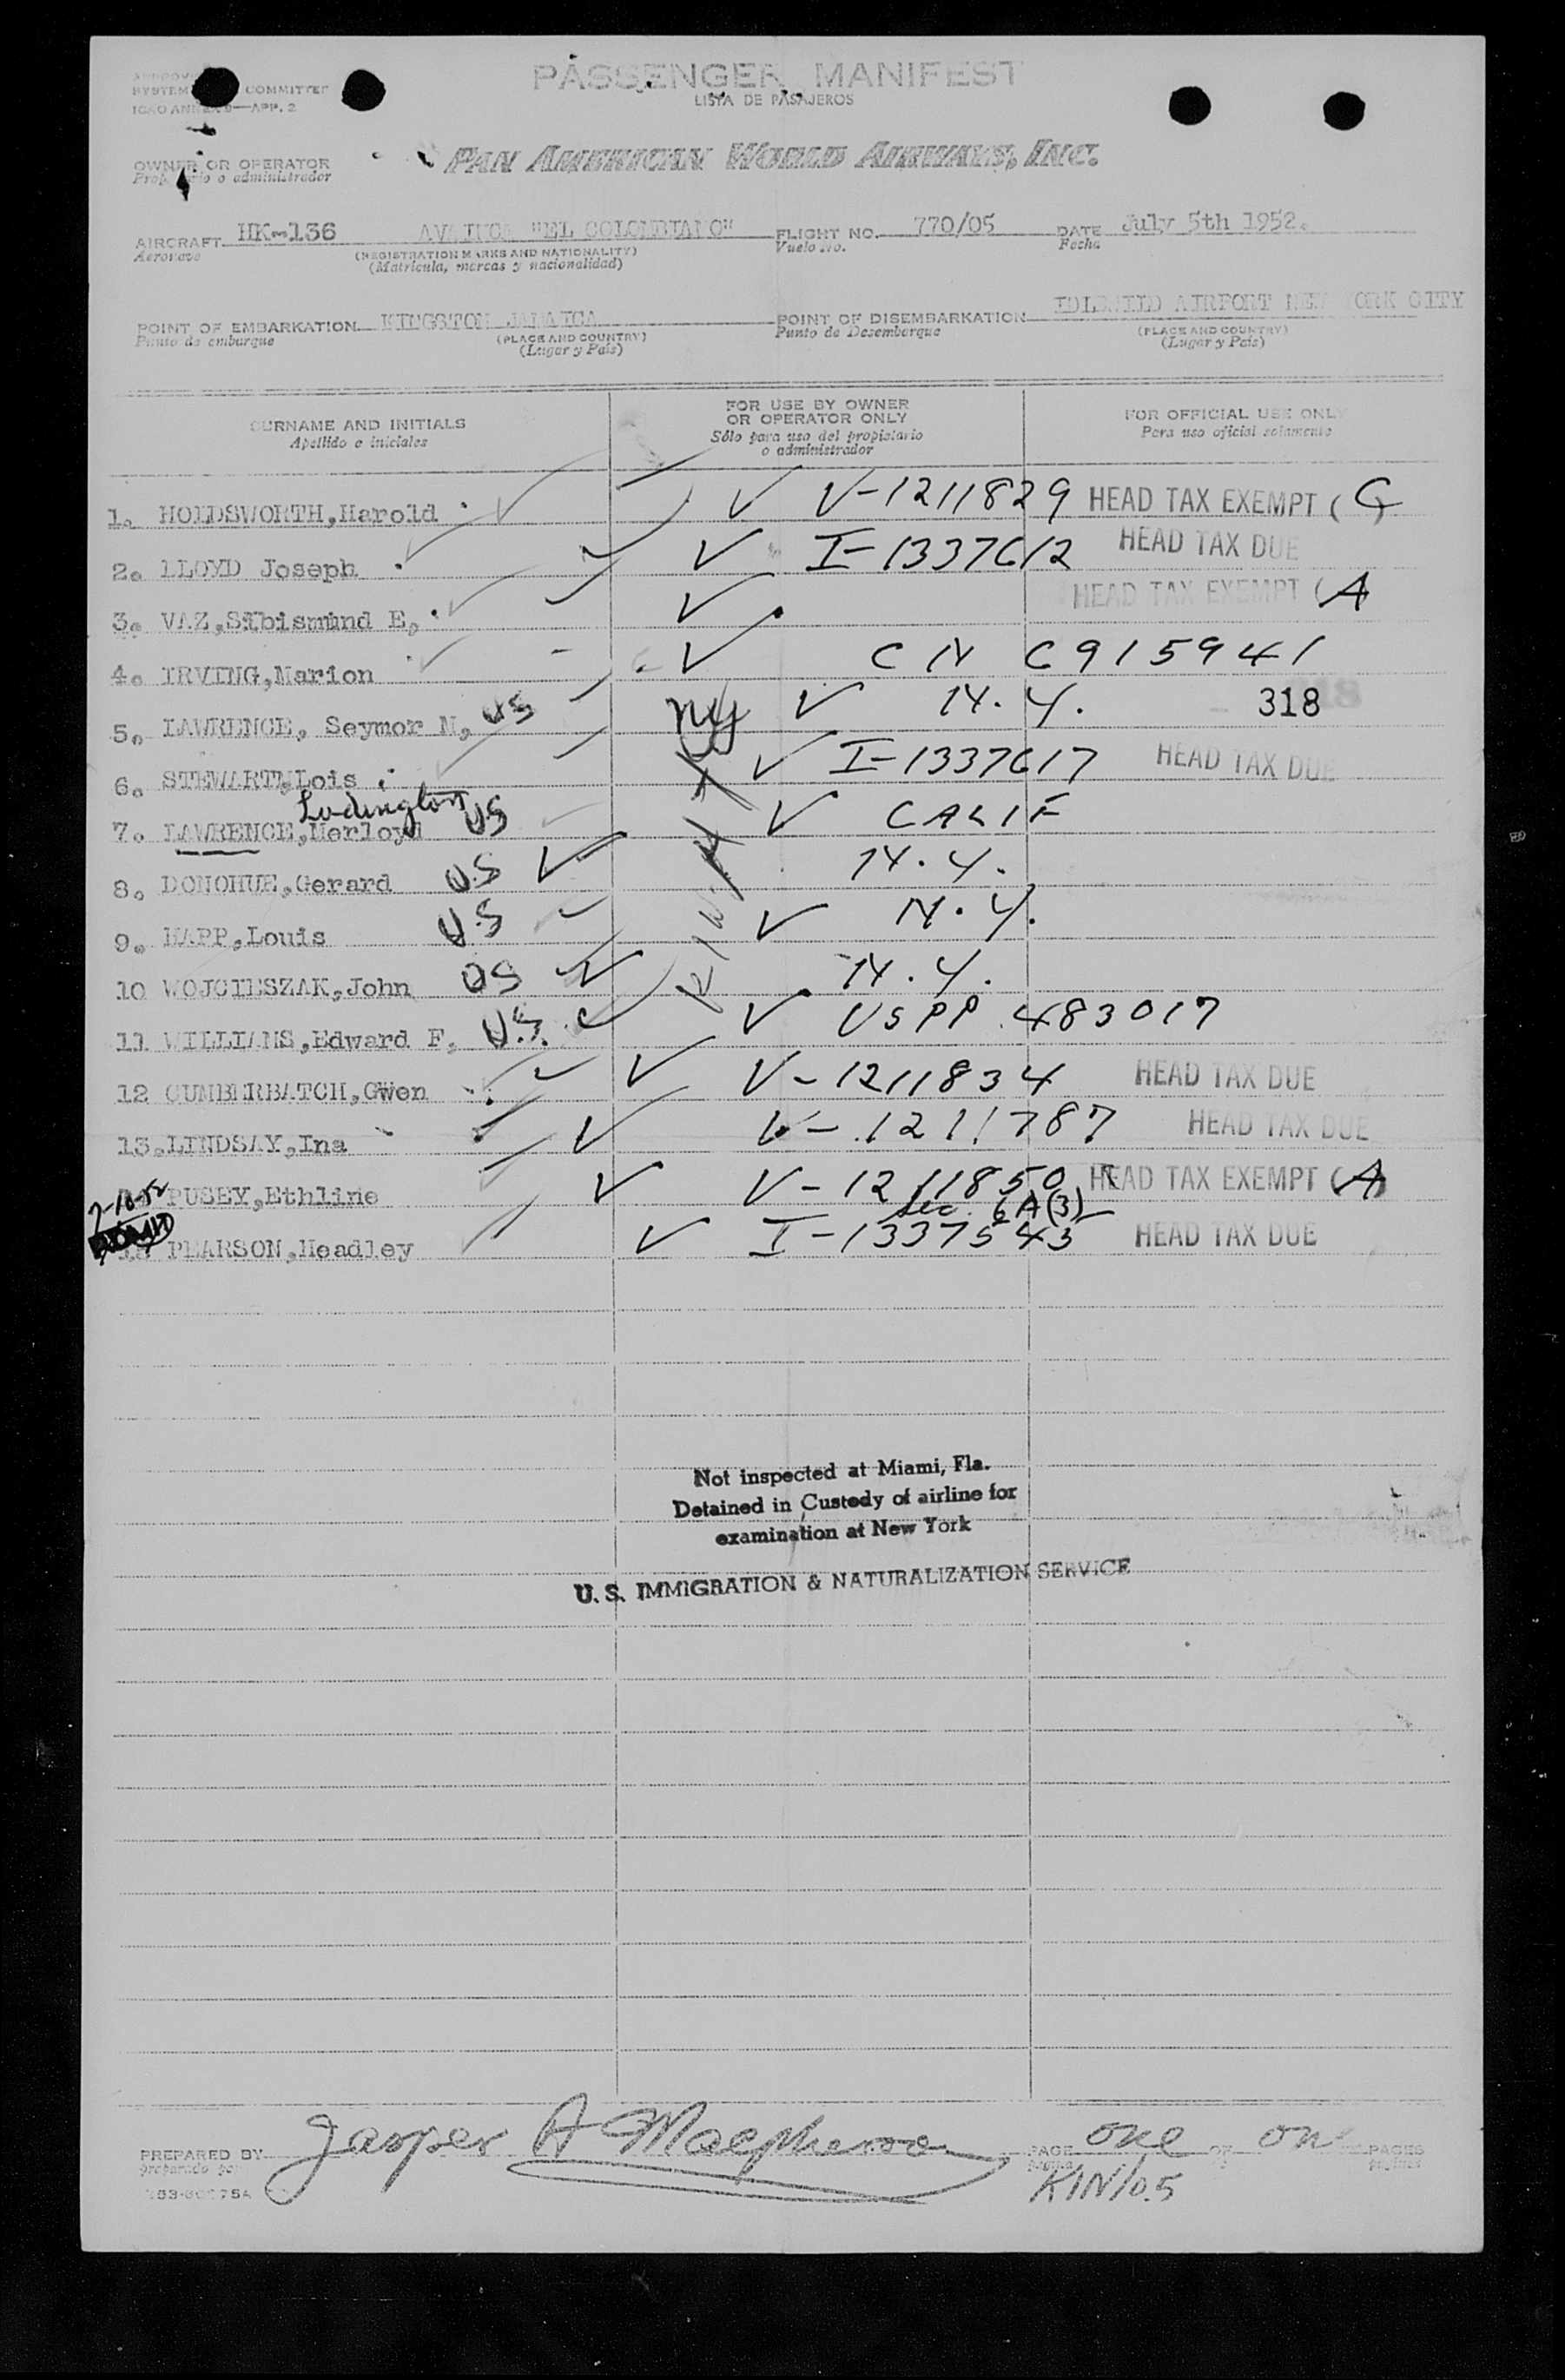 PASSENGER MANIFEST
LISTA DE PASAJEROS
COMMITTEE
APP. 2
OWNER OR OPERATOR
o administrador
PAN AMERICAN WORLD AIRWAYS, INC.
AIRCRAFT HK-136 "EL COLOMBIANO" FLIGHT NO. 770/05 DATE July 5th 1952.
Aeronave (REGISTRATION MARKS AND NATIONALITY) Vuelo No. Fecha
(Matricula, marcas y nacionalidad)
POINT OF EMBARKATION KINGSTON JAMAICA POINT OF DISEMBARKATION IDLEWILD AIRPORT NEW YORK CITY
Punto de embarque (PLACE AND COUNTRY) Punto de Desembarque (PLACE AND COUNTRY)
(Lugar y País) (Lugar y País)
SURNAME AND INITIALS FOR USE BY OWNER OR OPERATOR ONLY FOR OFFICIAL USE ONLY
Apellido e iniciales Sólo para uso del propietario o administrador Para uso oficial solamente
1. HOLDSWORTH,Harold V-1211829 HEAD TAX EXEMPT (G
2. LLOYD Joseph I-1337612 HEAD TAX DUE
3. VAZ, E, HEAD TAX EXEMPT (A
4. IRVING,Marion C N C915941
5. LAWRENCE, Seymor N, US NY N.Y. 318
6. STEWART,Lois I-1337617 HEAD TAX DUE
Ludington
7. LAWRENCE,Merloyd US CALIF
8. DONOHUE,Gerard U.S N.Y.
9. HAPP,Louis U.S N.Y.
10 WOJCIESZAK,John US N.Y.
11 WILLIAMS,Edward F, U.S. US PP 483017
12 CUMBERBATCH,Gwen V-1211834 HEAD TAX DUE
13.LINDSAY,Ina V-1211787 HEAD TAX DUE
PUSEY,Ethline V-1211850 HEAD TAX EXEMPT (A
Sec. 6A(3)
PEARSON,Headley I-1337543 HEAD TAX DUE
Not inspected at Miami, Fla.
Detained in Custody of airline for
examination at New York
U. S. IMMIGRATION & NATURALIZATION SERVICE
PREPARED BY Jasper A Macpherson PAGE one OF on PAGES
KIN/05